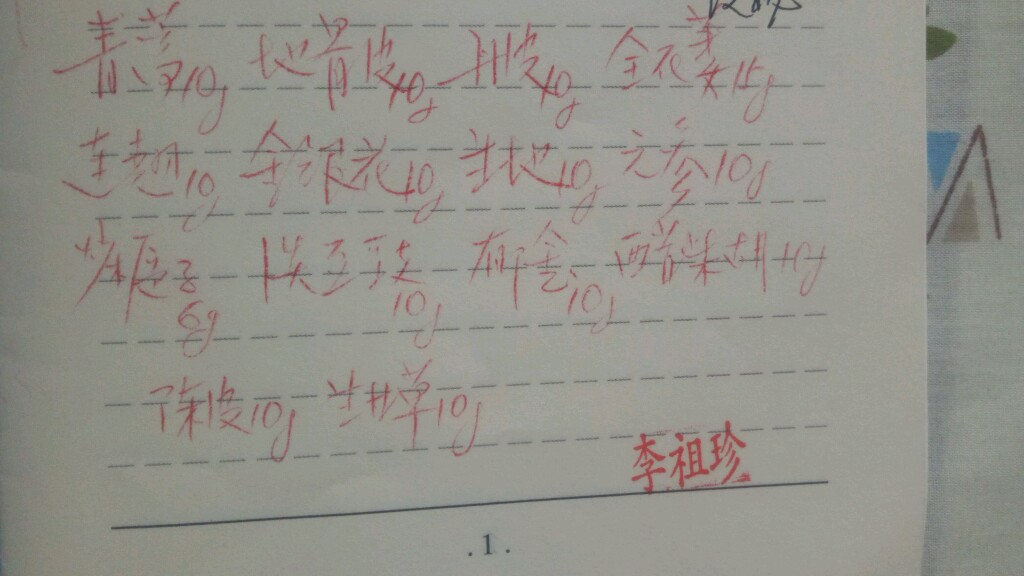 青蒿10g 地骨皮10g 丹皮10g 全瓜蒌15g
连翘10g 金银花10g 生地10g 元参10g
葶苈子6g 郁金10g 醋柴胡10g
陈皮10g 生甘草10g
李祖珍
.1.